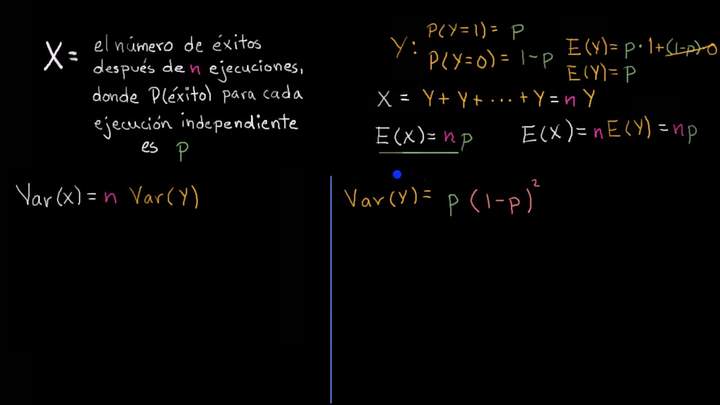 X = el número de éxitos
después de n ejecuciones,
donde P(éxito) para cada
ejecución independiente
es p
Y: P(Y=1) = p
P(Y=0) = 1-p
E(Y) = p·1+(1-p)·0
E(Y) = p
X = Y + Y + ··· + Y = n Y
E(X) = np
E(X) = n E(Y) = np
Var(X) = n Var(Y)
Var(Y) = p (1-p)²